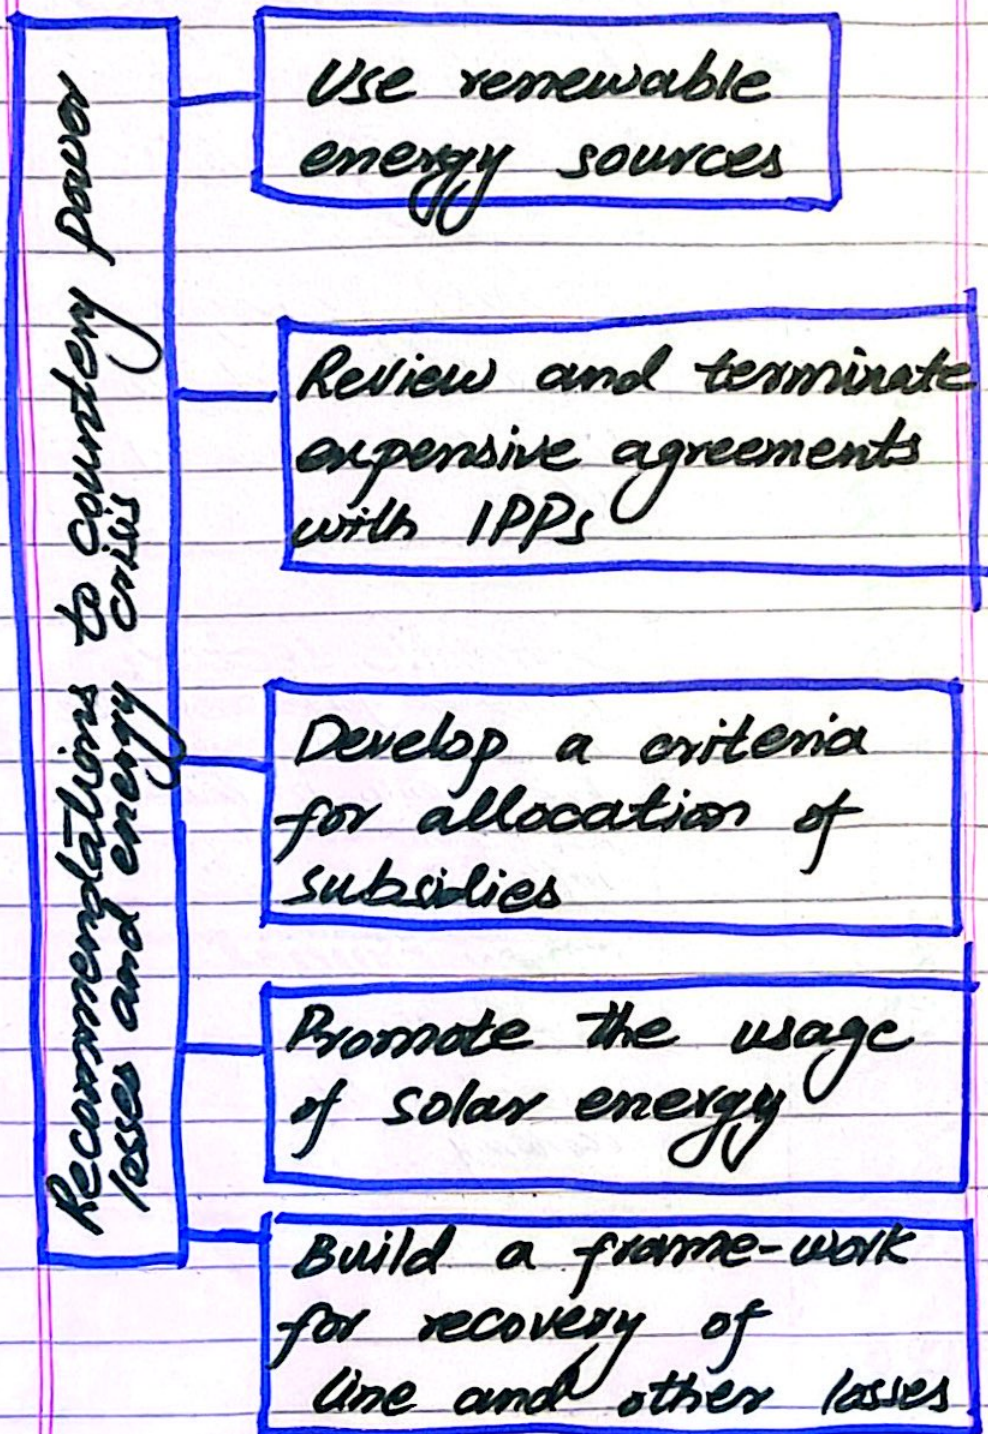 Recommendations to countery power
losses and energy crisis
Use renewable
energy sources
Review and terminate
expensive agreements
with IPPs
Develop a criteria
for allocation of
subsidies
Promote the usage
of solar energy
Build a frame-work
for recovery of
line and other losses